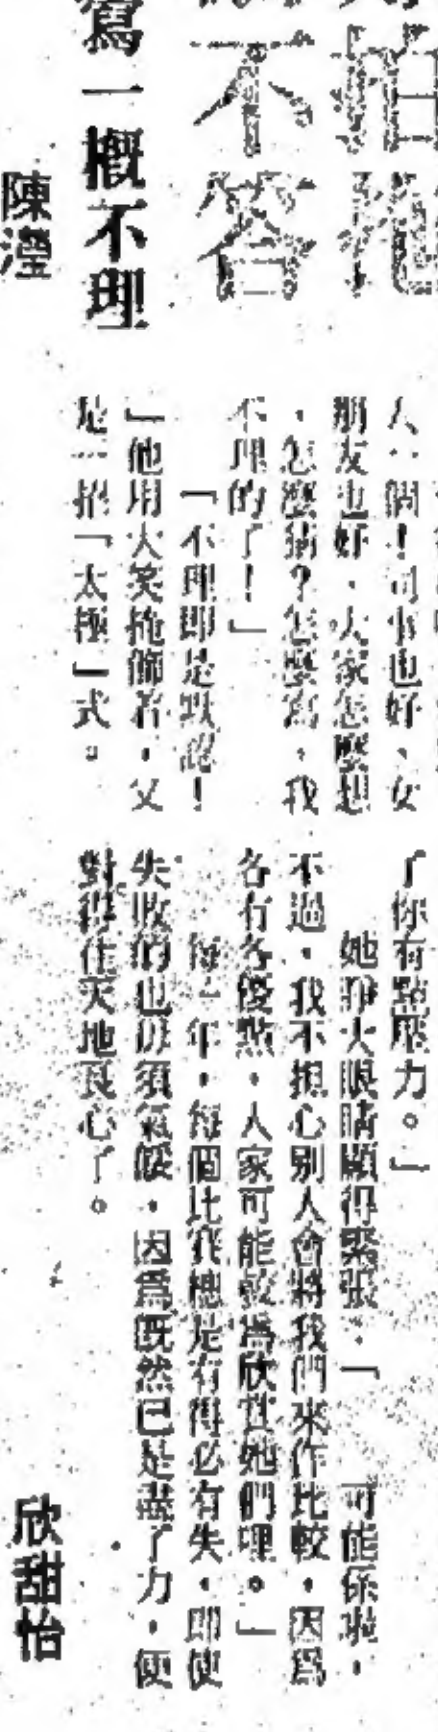 拍拖
不答
寫一概不理
陳瀅
人一個！同事也好、女
朋友也好，大家怎麼想
，怎麼猜？怎麼寫，我
不理的了！」
「不理即是默認！
」他用大笑掩飾着，又
是一招「太極」式。
了你有點壓力。」
她睜大眼睛顯得緊張：「可能係啦，
不過，我不擔心別人會將我們來作比較，因爲
各有各優點，人家可能較爲欣賞她們哩。」
每一年，每個比賽總是有得必有失，即使
失敗的也毋須氣餒，因爲既然已是盡了力，便
對得住天地良心了。
欣甜怡